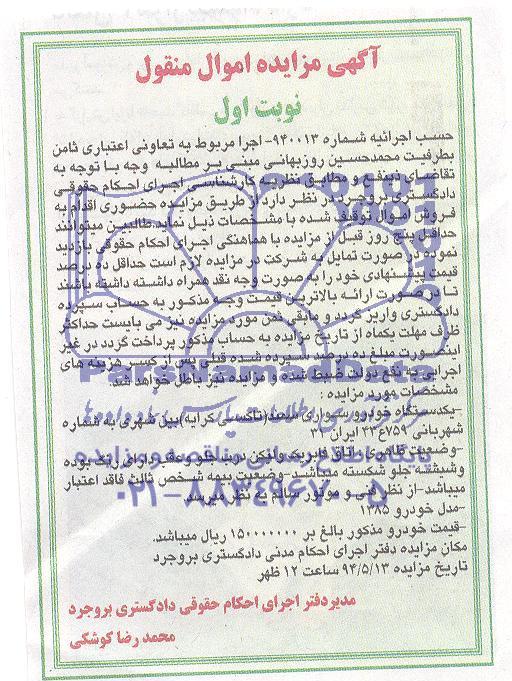 آگهی مزایده اموال منقول
نوبت اول
حسب اجرائیه شماره ۹۴۰۰۱۳- اجرا مربوط به تعاونی اعتباری ثامن
بطرفیت محمدحسین روزبهانی مبنی بر مطالبه وجه با توجه به
تقاضای ذینفع و مطابق نظریه کارشناسی اجرای احکام حقوقی
دادگستری بروجرد در نظر دارد از طریق مزایده حضوری اقدام به
فروش اموال توقیف شده با مشخصات ذیل نماید.طالبین میتوانند
حداقل پنج روز قبل از مزایده با هماهنگی اجرای احکام حقوقی بازدید
نموده در صورت تمایل به شرکت در مزایده لازم است حداقل ده درصد
قیمت پیشنهادی خود را به صورت وجه نقد همراه داشته داشته باشند
تا در صورت ارائه بالاترین قیمت وجه مذکور به حساب سپرده
دادگستری واریز گردد و مابقی ثمن مورد مزایده نیز می بایست حداکثر
ظرف مهلت یکماه از تاریخ مزایده به حساب مذکور پرداخت گردد در غیر
اینصورت مبلغ ده درصد سپرده شده قبلی پس از کسر هزینه های
اجرایی به نفع دولت ضبط شده و مزایده نیز باطل خواهد شد.
مشخصات مورد مزایده :
-یکدستگاه خودرو سواری سمند(تاکسی کرایه)بین شهری به شماره
شهربانی ۷۵۹ع۴۳ ایران ۳۱
-وضعیت ظاهری: اتاق فابریک ولیکن درب جلو وعقب دارای رنگ بوده
وشیشه جلو شکسته میباشد-وضعیت بیمه شخص ثالث فاقد اعتبار
میباشد-از نظر فنی و موتور سالم به نظر میرسد
-مدل خودرو ۱۳۸۵
-قیمت خودرو مذکور بالغ بر ۱۵۰۰۰۰۰۰۰ ریال میباشد.
مکان مزایده دفتر اجرای احکام مدنی دادگستری بروجرد
تاریخ مزایده ۹۴/۵/۱۳ ساعت ۱۲ ظهر
مدیردفتر اجرای احکام حقوقی دادگستری بروجرد
محمد رضا کوشکی
ParsNamadData
۰۲۱-۸۸۳۴۹۶۷۰-۵